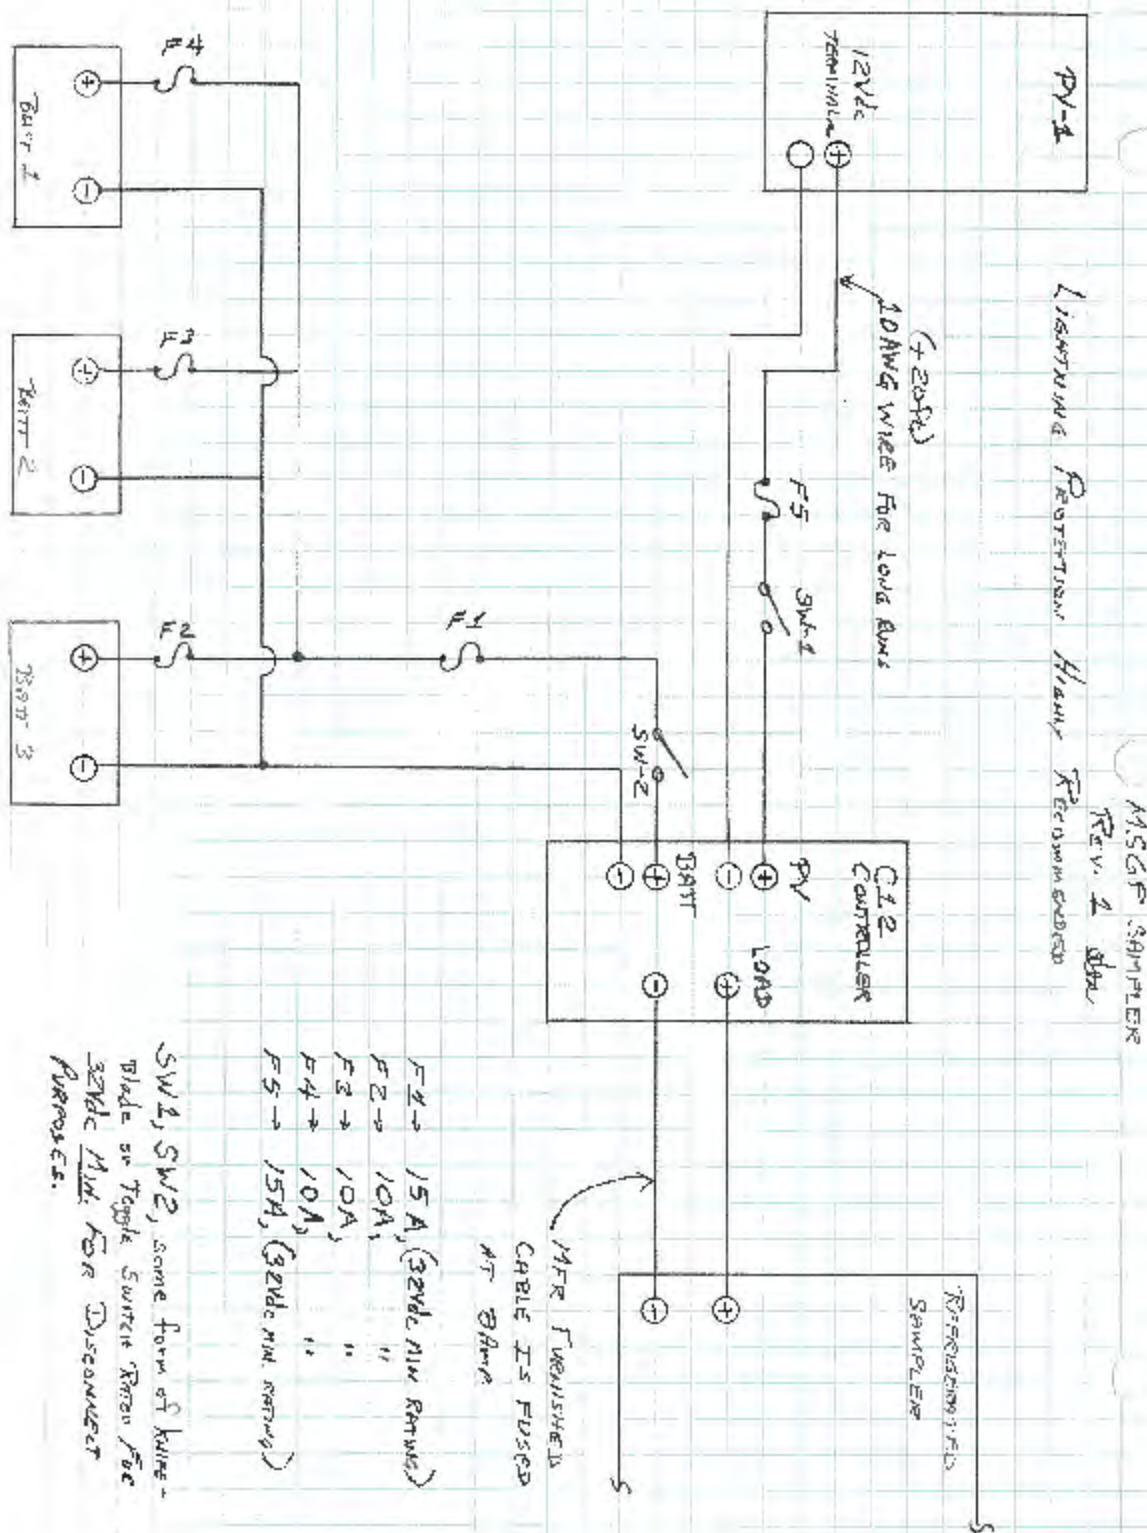 MSGF SAMPLER
REV. 1
LIGHTNING PROTECTION HIGHLY RECOMMENDED
PV-1
12Vdc
TERMINALS
+
(+20ft)
10 AWG WIRE FOR LONG RUNS
F5
SW-1
C12
CONTROLLER
PV
+
-
BATT
+
-
LOAD
+
-
REFRIGERATED
SAMPLER
+
-
MFR FURNISHED
CABLE IS FUSED
AT 8 Amp
SW-2
F1
F4
F3
F2
+
-
BATT 1
+
-
BATT 2
+
-
BATT 3
F1→ 15A, (32Vdc MIN. RATING)
F2→ 10A, "
F3→ 10A, "
F4→ 10A, "
F5→ 15A, (32Vdc MIN. RATING)
SW1, SW2, some form of KNIFE-
Blade or Toggle SWITCH RATED FOR
32Vdc MIN. FOR DISCONNECT
PURPOSES.